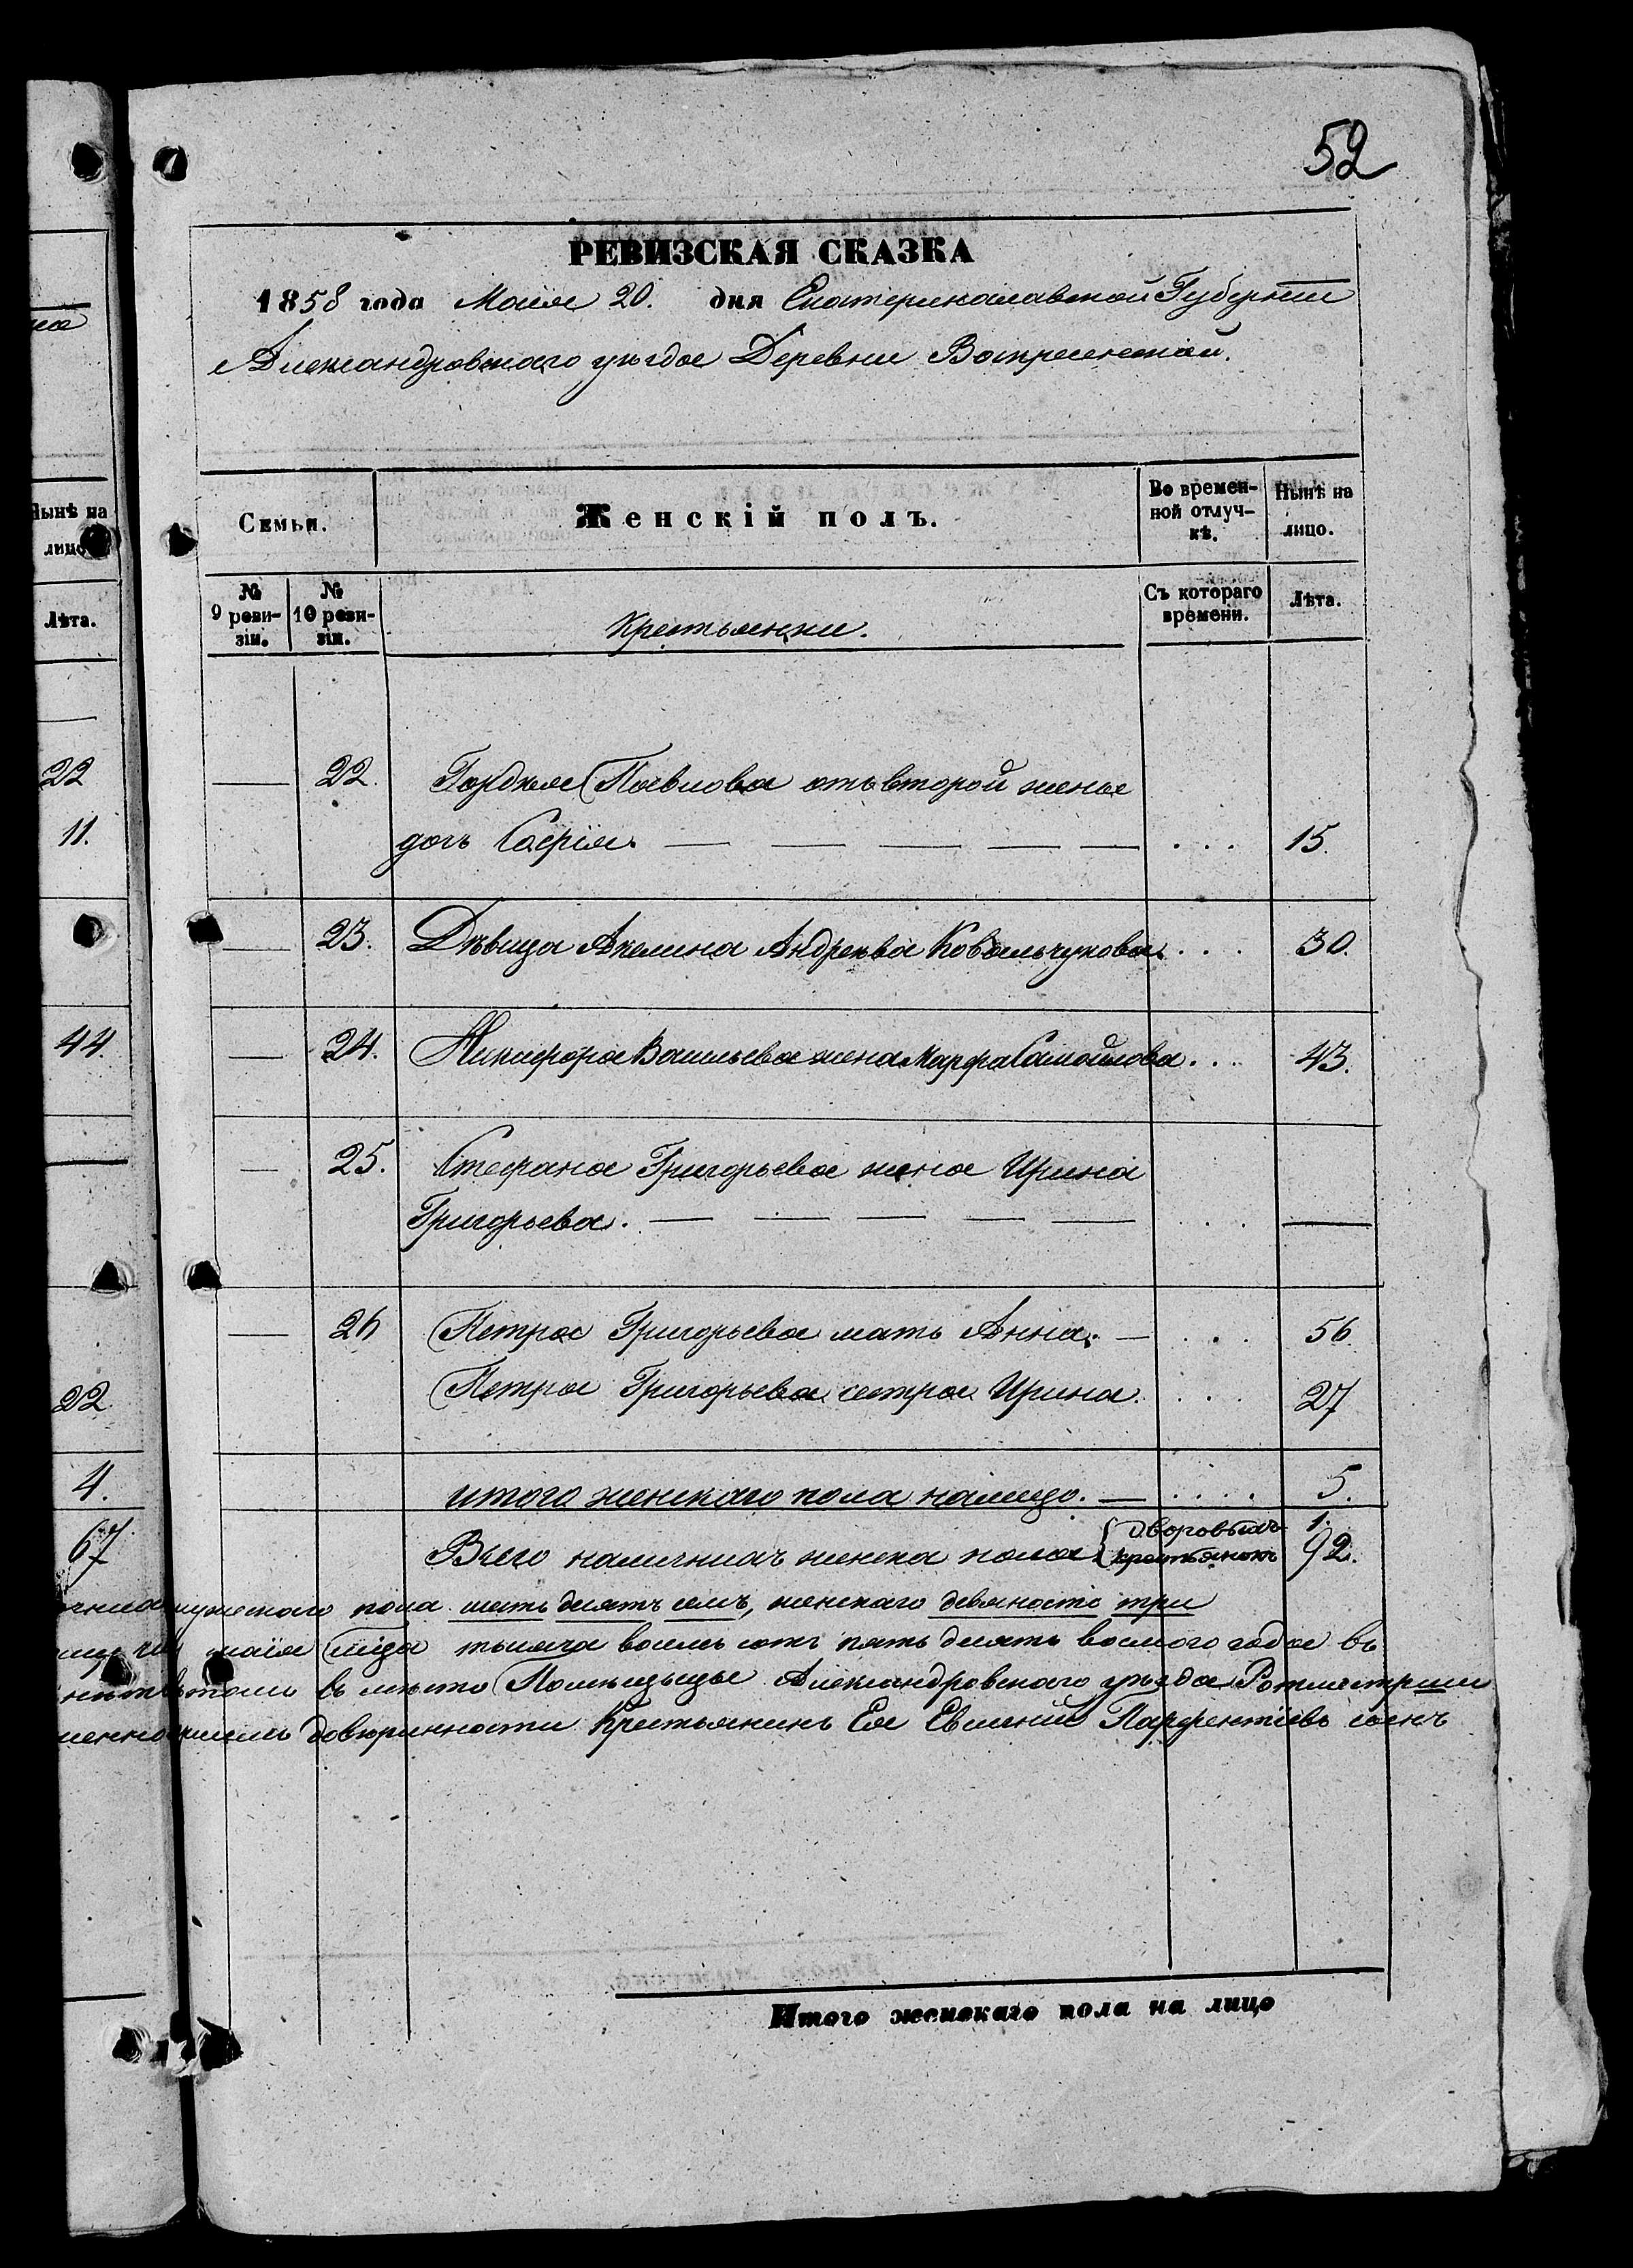 52
РЕВИЗСКАЯ СКАЗКА
1858 года Маія 20. дня Екатеринославской Губерніи
Александровскаго уѣзда Деревни Воскресенской.
Нынѣ на лицо.
Семьи.
Женскій полъ.
Во времен-
ной отлуч-
кѣ.
Нынѣ на
лицо.
Лѣта.
№
9 реви-
зіи.
№
10 реви-
зіи.
Крестьянки.
Съ котораго
времени.
Лѣта.
22
— 22. Гордѣя Павлова отъ второй жены
11.
дочь Софія. — — — — — . . . 15.
— 23. Дѣвица Акелина Андреева Ковальчукова. . . . 30.
44.
— 24. Никифора Васильева жена Марфа Самойлова . . . 43.
— 25. Стефана Григорьева жена Ирина
Григорьева. — — — — — . . . —
— 26 Петра Григорьева мать Анна. — . . . 56.
22
Петра Григорьева сестра Ирина. . . . 27
4.
итого женскаго пола налицо. — . . . . 5.
67
Всего наличныхъ женска пола { дворовыхъ 1.
крестьянокъ 92.
мужескаго пола шесть десятъ семъ, женскаго девяносто три
маія тысяча восемь сотъ пять десятъ восмого года въ
въ мѣсто Помѣщицы Александровскаго уѣзда Ротмистрши
довѣринности Крестьянинъ Ея Евсений Парфентіевъ сынъ
Итого женскаго пола на лицо